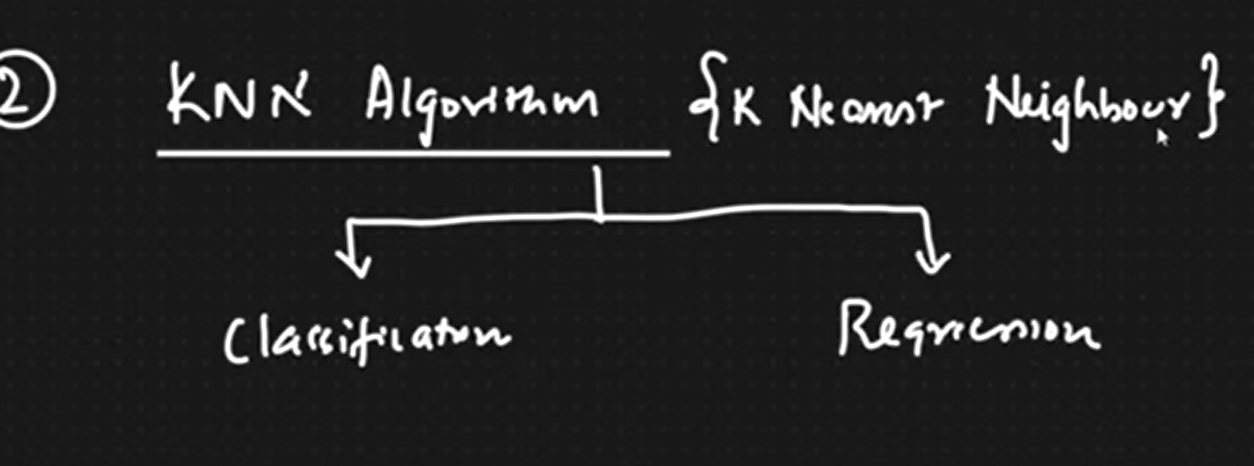 ② KNN Algorithm {K Nearest Neighbour}
Classification Regression